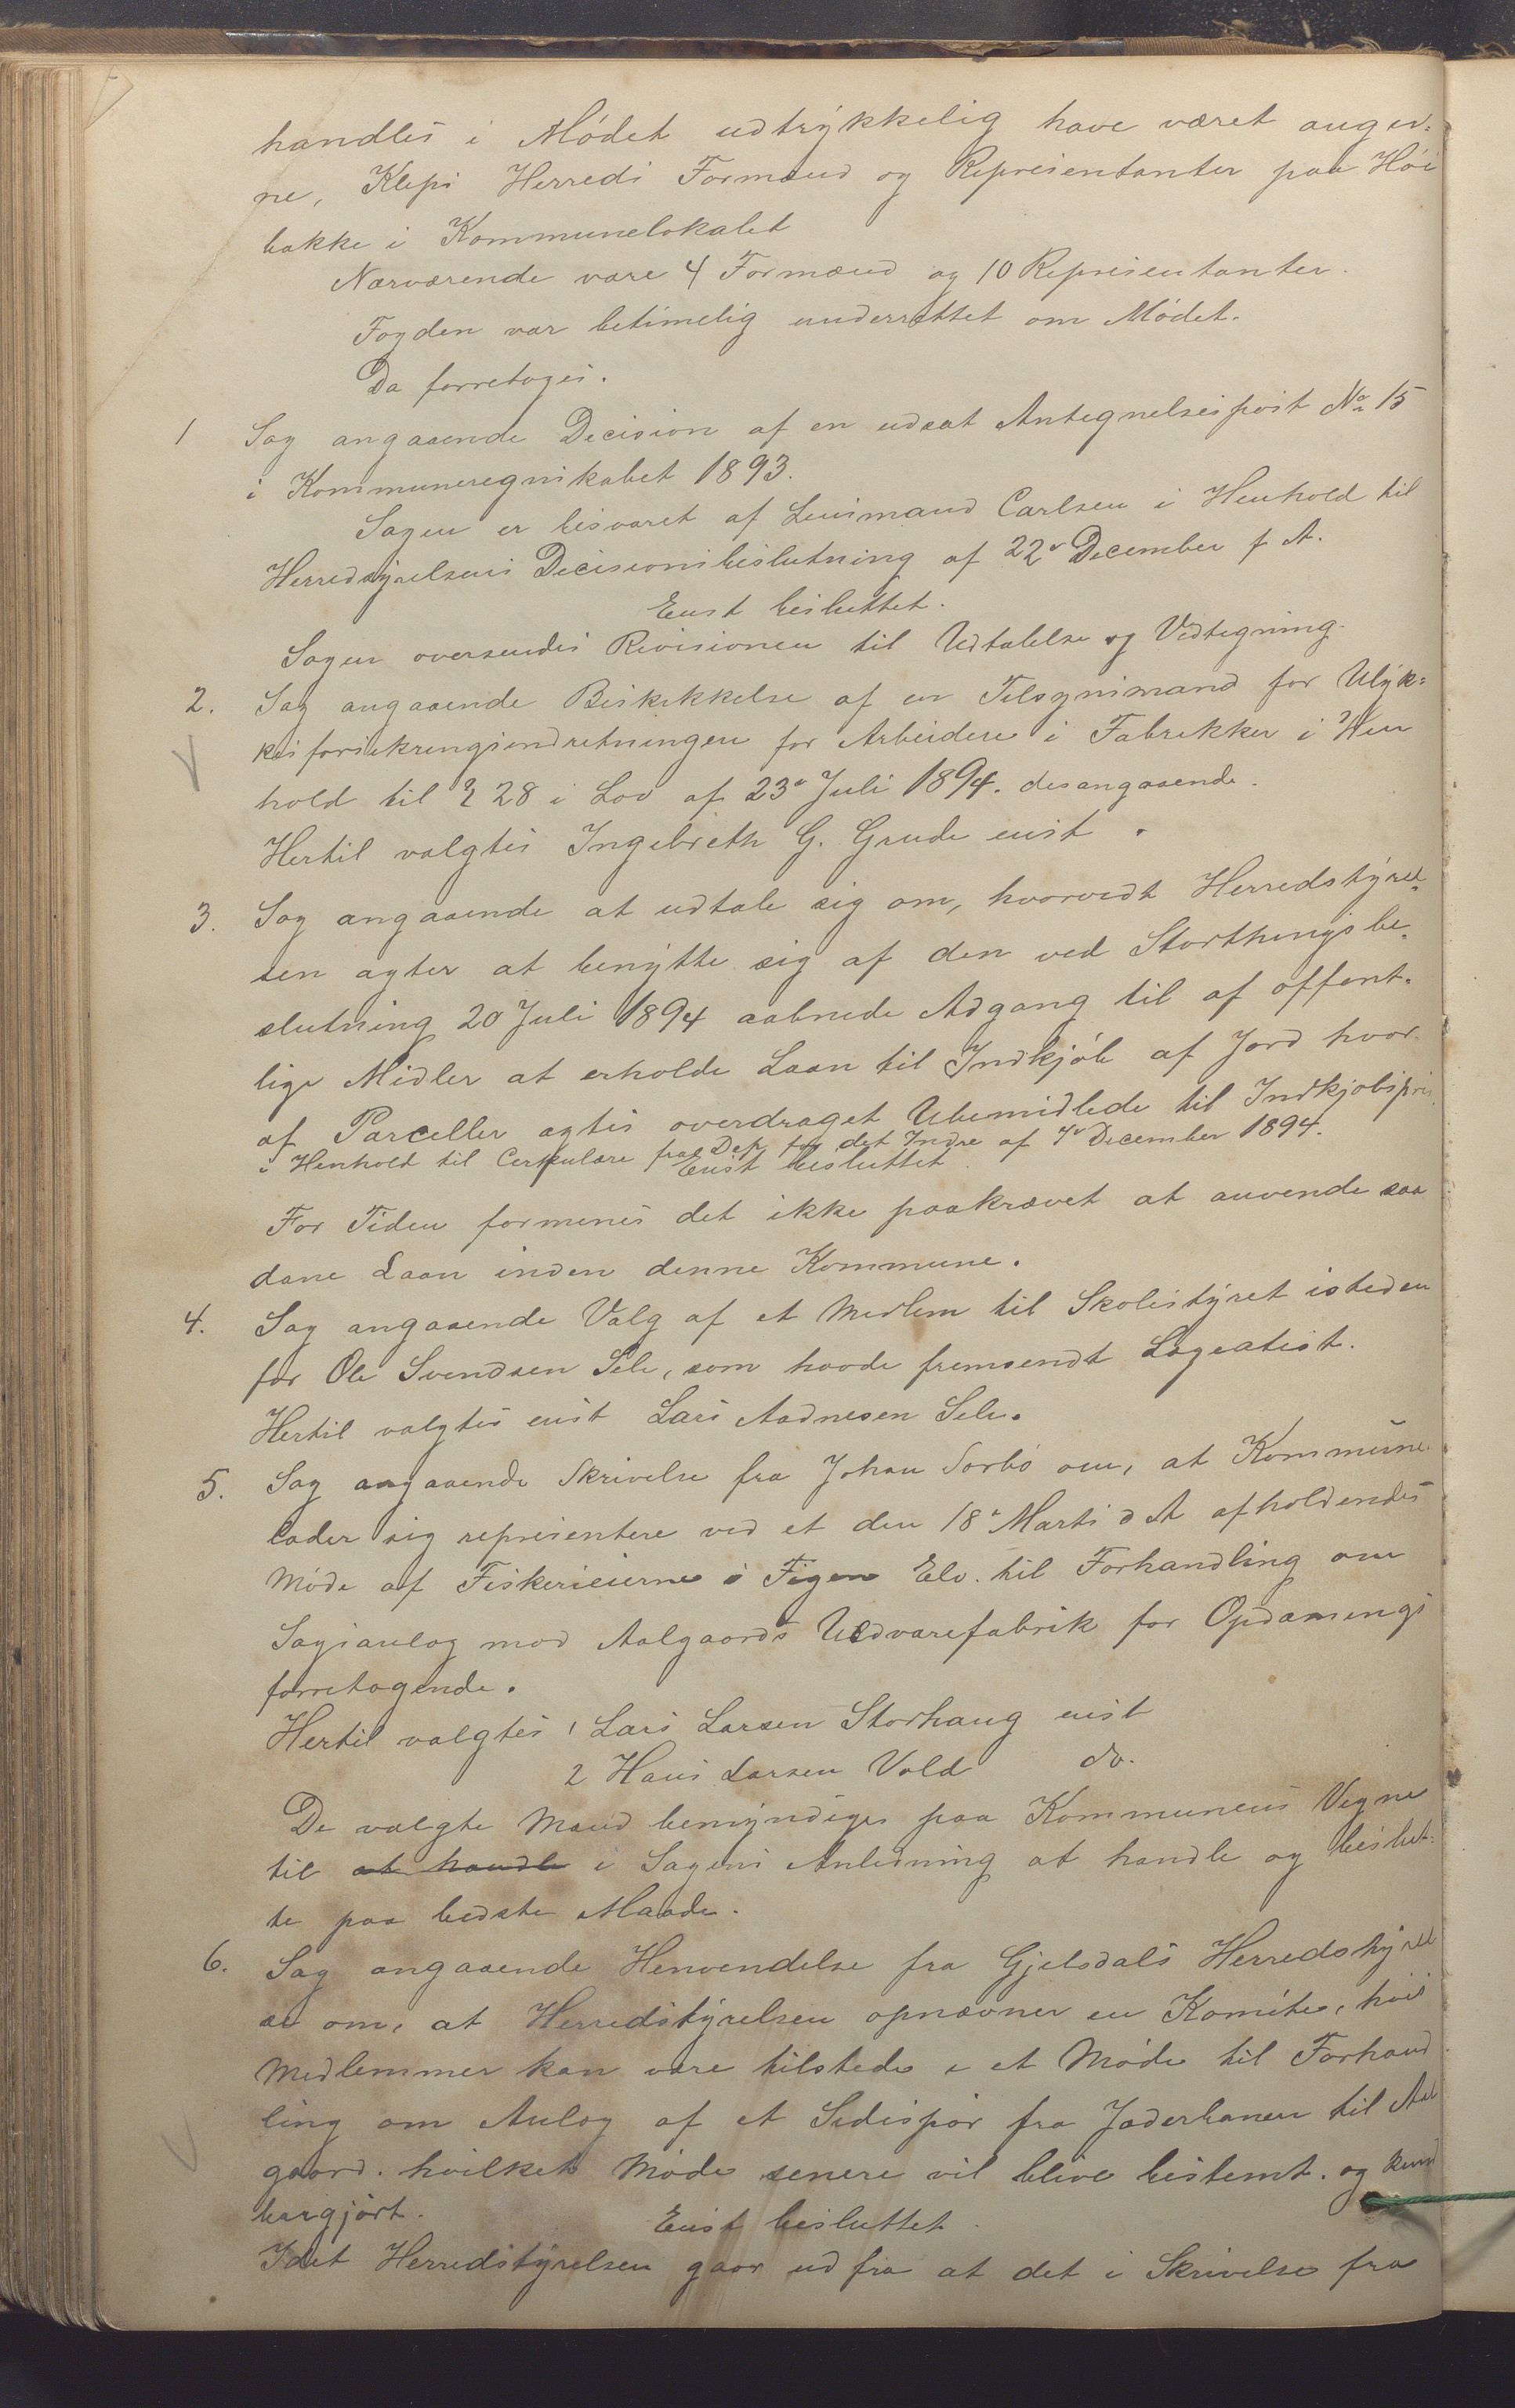 handles i Mødet udtrykkelig have været angiv-
ne, Kleps Herreds Formænd og Repræsentanter paa Høi
bakke i Kommunelokalet
Nærværende vare 4 Formænd og 10 Repræsentanter.
Fogden var betimelig underrettet om Mødet.
Da forretoges.
1 Sag angaaende Decision af en udsat Antegnelsespost No 15
i Kommuneregnskabet 1893.
Sagen er besvaret af Lensmand Carlsen i Henhold til
Herredsyrelsens Decisionsbeslutning af 22de December f. A.
Enst besluttet.
Sagen oversendes Revisionen til Udtalelse og Vedtegning.
2. Sag angaaende Beskikkelse af en Tilsynsmand for Ulyk-
kesforsikringsindretningen for Arbeidere i Fabrikker i Hen
hold til § 28 i Lov af 23de Juli 1894. desangaaende.
Hertil valgtes Ingebreth G. Grude enst.
3. Sag angaaende at udtale sig om, hvorvidt Herredstyrel-
sen agter at benytte sig af den ved Storthingsbe-
slutning 20 Juli 1894 aabnede Adgang til af offent-
lige Midler at erholde Laan til Indkjøb af Jord hvor-
af Parceller agtes overdraget Ubemidlede til Indkjøbspris
i Henhold til Cerkulære fra Dep. for det Indre af 7de December 1894.
Enst besluttet.
For Tiden formenes det ikke paakrævet at anvende saa
dane Laan inden denne Kommune.
4. Sag angaaende Valg af et Medlem til Skolestyret isteden
for Ole Svendsen Sele, som havde fremsendt Lægeatest.
Hertil valgtes enst Lars Aadnesen Sele.
5. Sag angaaende Skrivelse fra Johan Sørbø om, at Kommune
lader sig repræsentere ved et den 18de Marts d A afholdendes
Møde af Fiskerieierne i Figen Elv. til Forhandling om
Sagsanlæg mod Aalgaards Uldvarefabrik for Opdæmnings
forretagende.
Hertil valgtes 1 Lars Larsen Storhaug enst
2 Hans Larsen Vold do.
De valgte Mænd bemyndiges paa Kommunens Vegne
til at handle i Sagens Anledning at handle og beslut-
te paa bedste Maade.
6. Sag angaaende Henvendelse fra Gjesdals Herredstyrel
se om, at Herredstyrelsen opnævner en Komite, hvis
Medlemmer kan være tilstede i et Møde til Forhand
ling om Anlæg af et Sidespor fra Jæderbanen til Aal
gaard. hvilket Møde senere vil blive bestemt. og kund
bargjort.
Enst besluttet.
Idet Herredstyrelsen gaar ud fra at det i Skrivelse fra